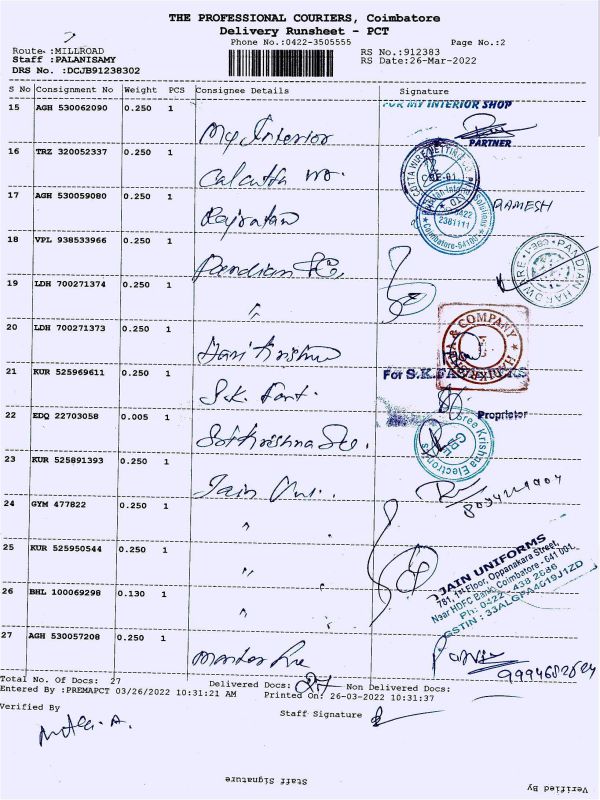 THE PROFESSIONAL COURIERS, Coimbatore
Delivery Runsheet - PCT
Phone No.:0422-3505555 Page No.:2
Route :MILLROAD RS No.:912383
Staff :PALANISAMY RS Date:26-Mar-2022
DRS No. :DCJB91238302
S No Consignment No Weight PCS Consignee Details Signature
15 AGH 530062090 0.250 1 My Interior
FOR MY INTERIOR SHOP
PARTNER
16 TRZ 320052337 0.250 1 Calcutta
17 AGH 530059080 0.250 1 Rajratan RAMESH
18 VPL 938533966 0.250 1 Pandian
PANDIAN HARDWARE
19 LDH 700271374 0.250 1 "
20 LDH 700271373 0.250 1 Hari Krishna
& COMPANY
21 KUR 525969611 0.250 1 S.K. Fant.
For S.K.
Proprietor
22 EDQ 22703058 0.005 1 Sri Krishna
Sree Krishna Electronics
CBE
23 KUR 525891393 0.250 1 Jain Uni.
24 GYM 477822 0.250 1 "
25 KUR 525950544 0.250 1 "
JAIN UNIFORMS
781, 1st Floor, Oppanakara Street,
Near HDFC Bank, Coimbatore - 641 001.
Ph: 0422 - 438 2686
GSTIN : 33ALGPA4619J1ZD
26 BHL 100069298 0.130 1 "
27 AGH 530057208 0.250 1
Total No. Of Docs: 27 Delivered Docs: 27 Non Delivered Docs:
Entered By :PREMAPCT 03/26/2022 10:31:21 AM Printed On: 26-03-2022 10:31:37
Verified By Staff Signature
Staff Signature Verified By